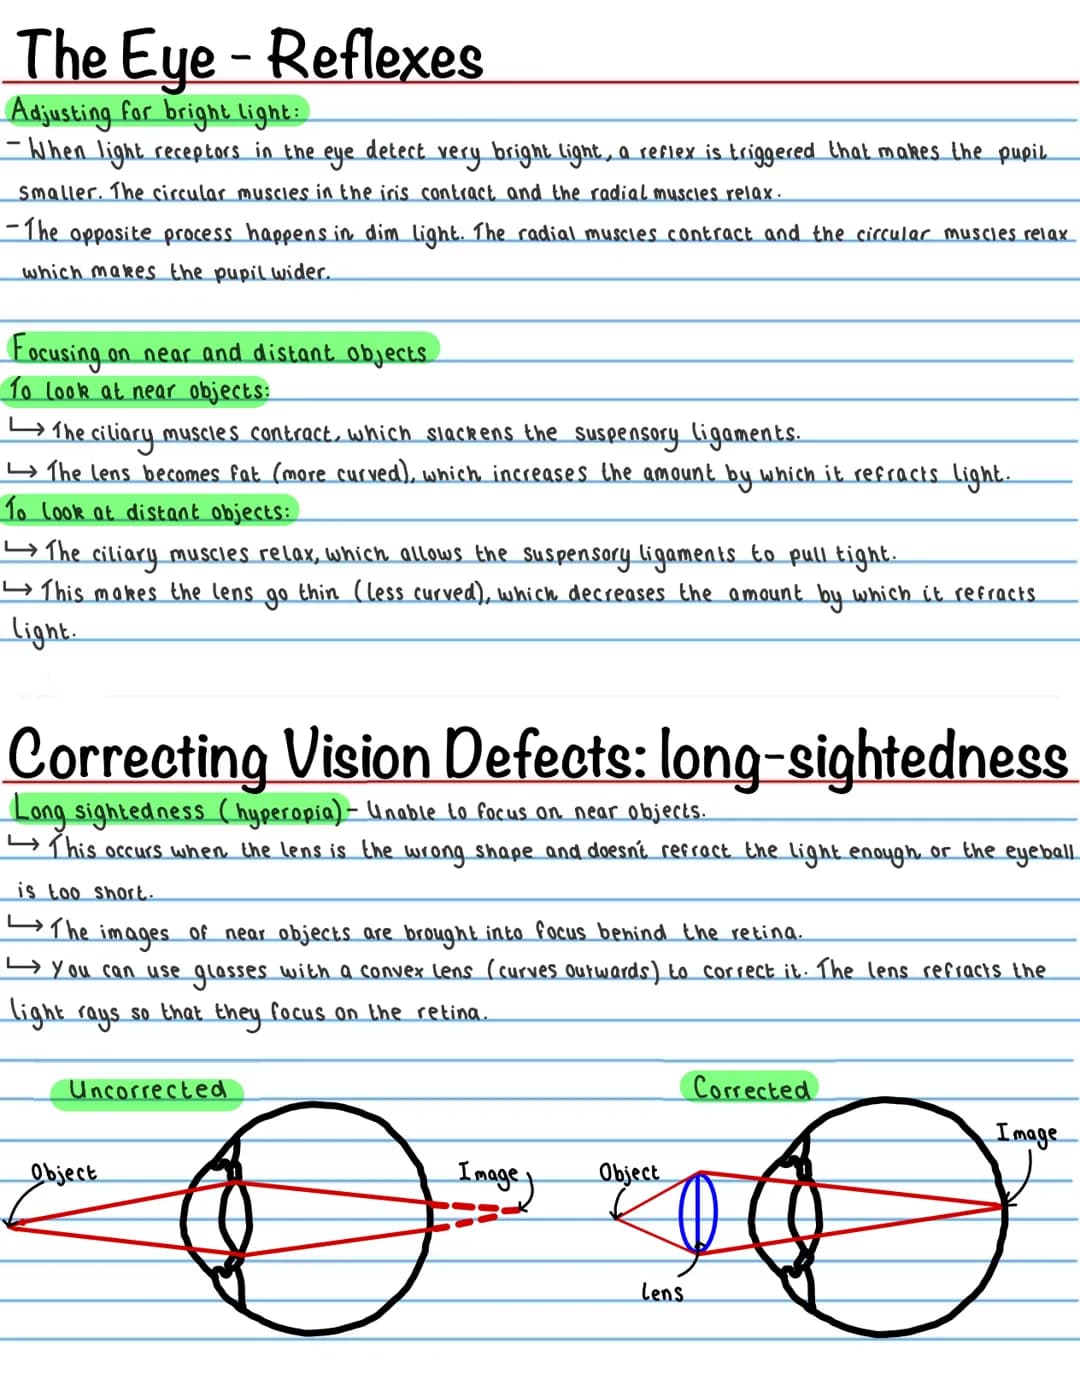 The Eye - Reflexes
Adjusting for bright light:
- When light receptors in the eye detect very bright light, a reflex is triggered that makes the pupil
smaller. The circular muscles in the iris contract and the radial muscles relax.
- The opposite process happens in dim light. The radial muscles contract and the circular muscles relax
which makes the pupil wider.
Focusing on near and distant objects
To look at near objects:
↳ The ciliary muscles contract, which slackens the suspensory ligaments.
↳ The lens becomes fat (more curved), which increases the amount by which it refracts light.
To look at distant objects:
↳ The ciliary muscles relax, which allows the suspensory ligaments to pull tight.
↳ This makes the lens go thin (less curved), which decreases the amount by which it refracts
light.
Correcting Vision Defects: long-sightedness
Long sightedness (hyperopia) - Unable to focus on near objects.
↳ This occurs when the lens is the wrong shape and doesn't refract the light enough or the eyeball
is too short.
↳ The images of near objects are brought into focus behind the retina.
↳ You can use glasses with a convex lens (curves outwards) to correct it. The lens refracts the
light rays so that they focus on the retina.
Uncorrected
Corrected
Object
Image
Object
Image
Lens